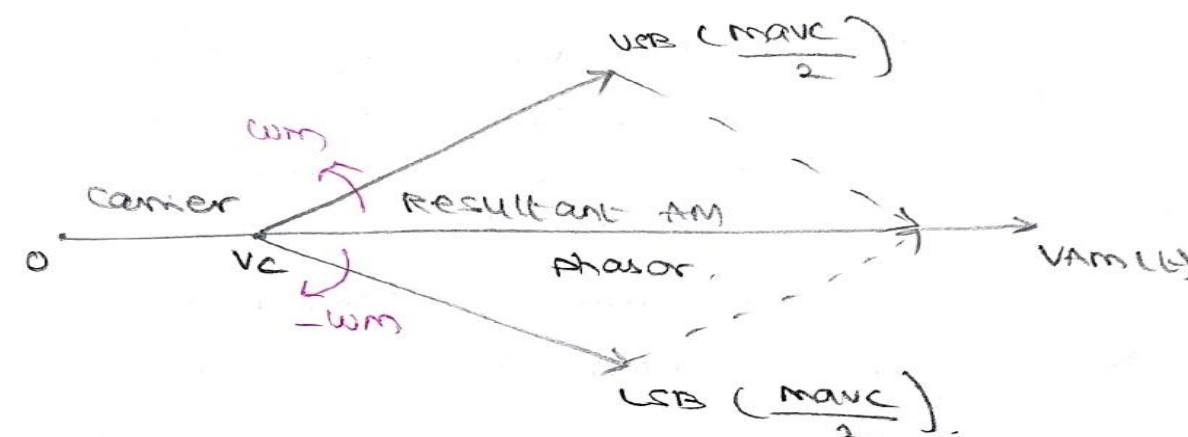 USB (mavc/2)
wm
carrier
Resultant AM
0
VC
phasor.
VAM(t)
-wm
LSB (mavc/2).